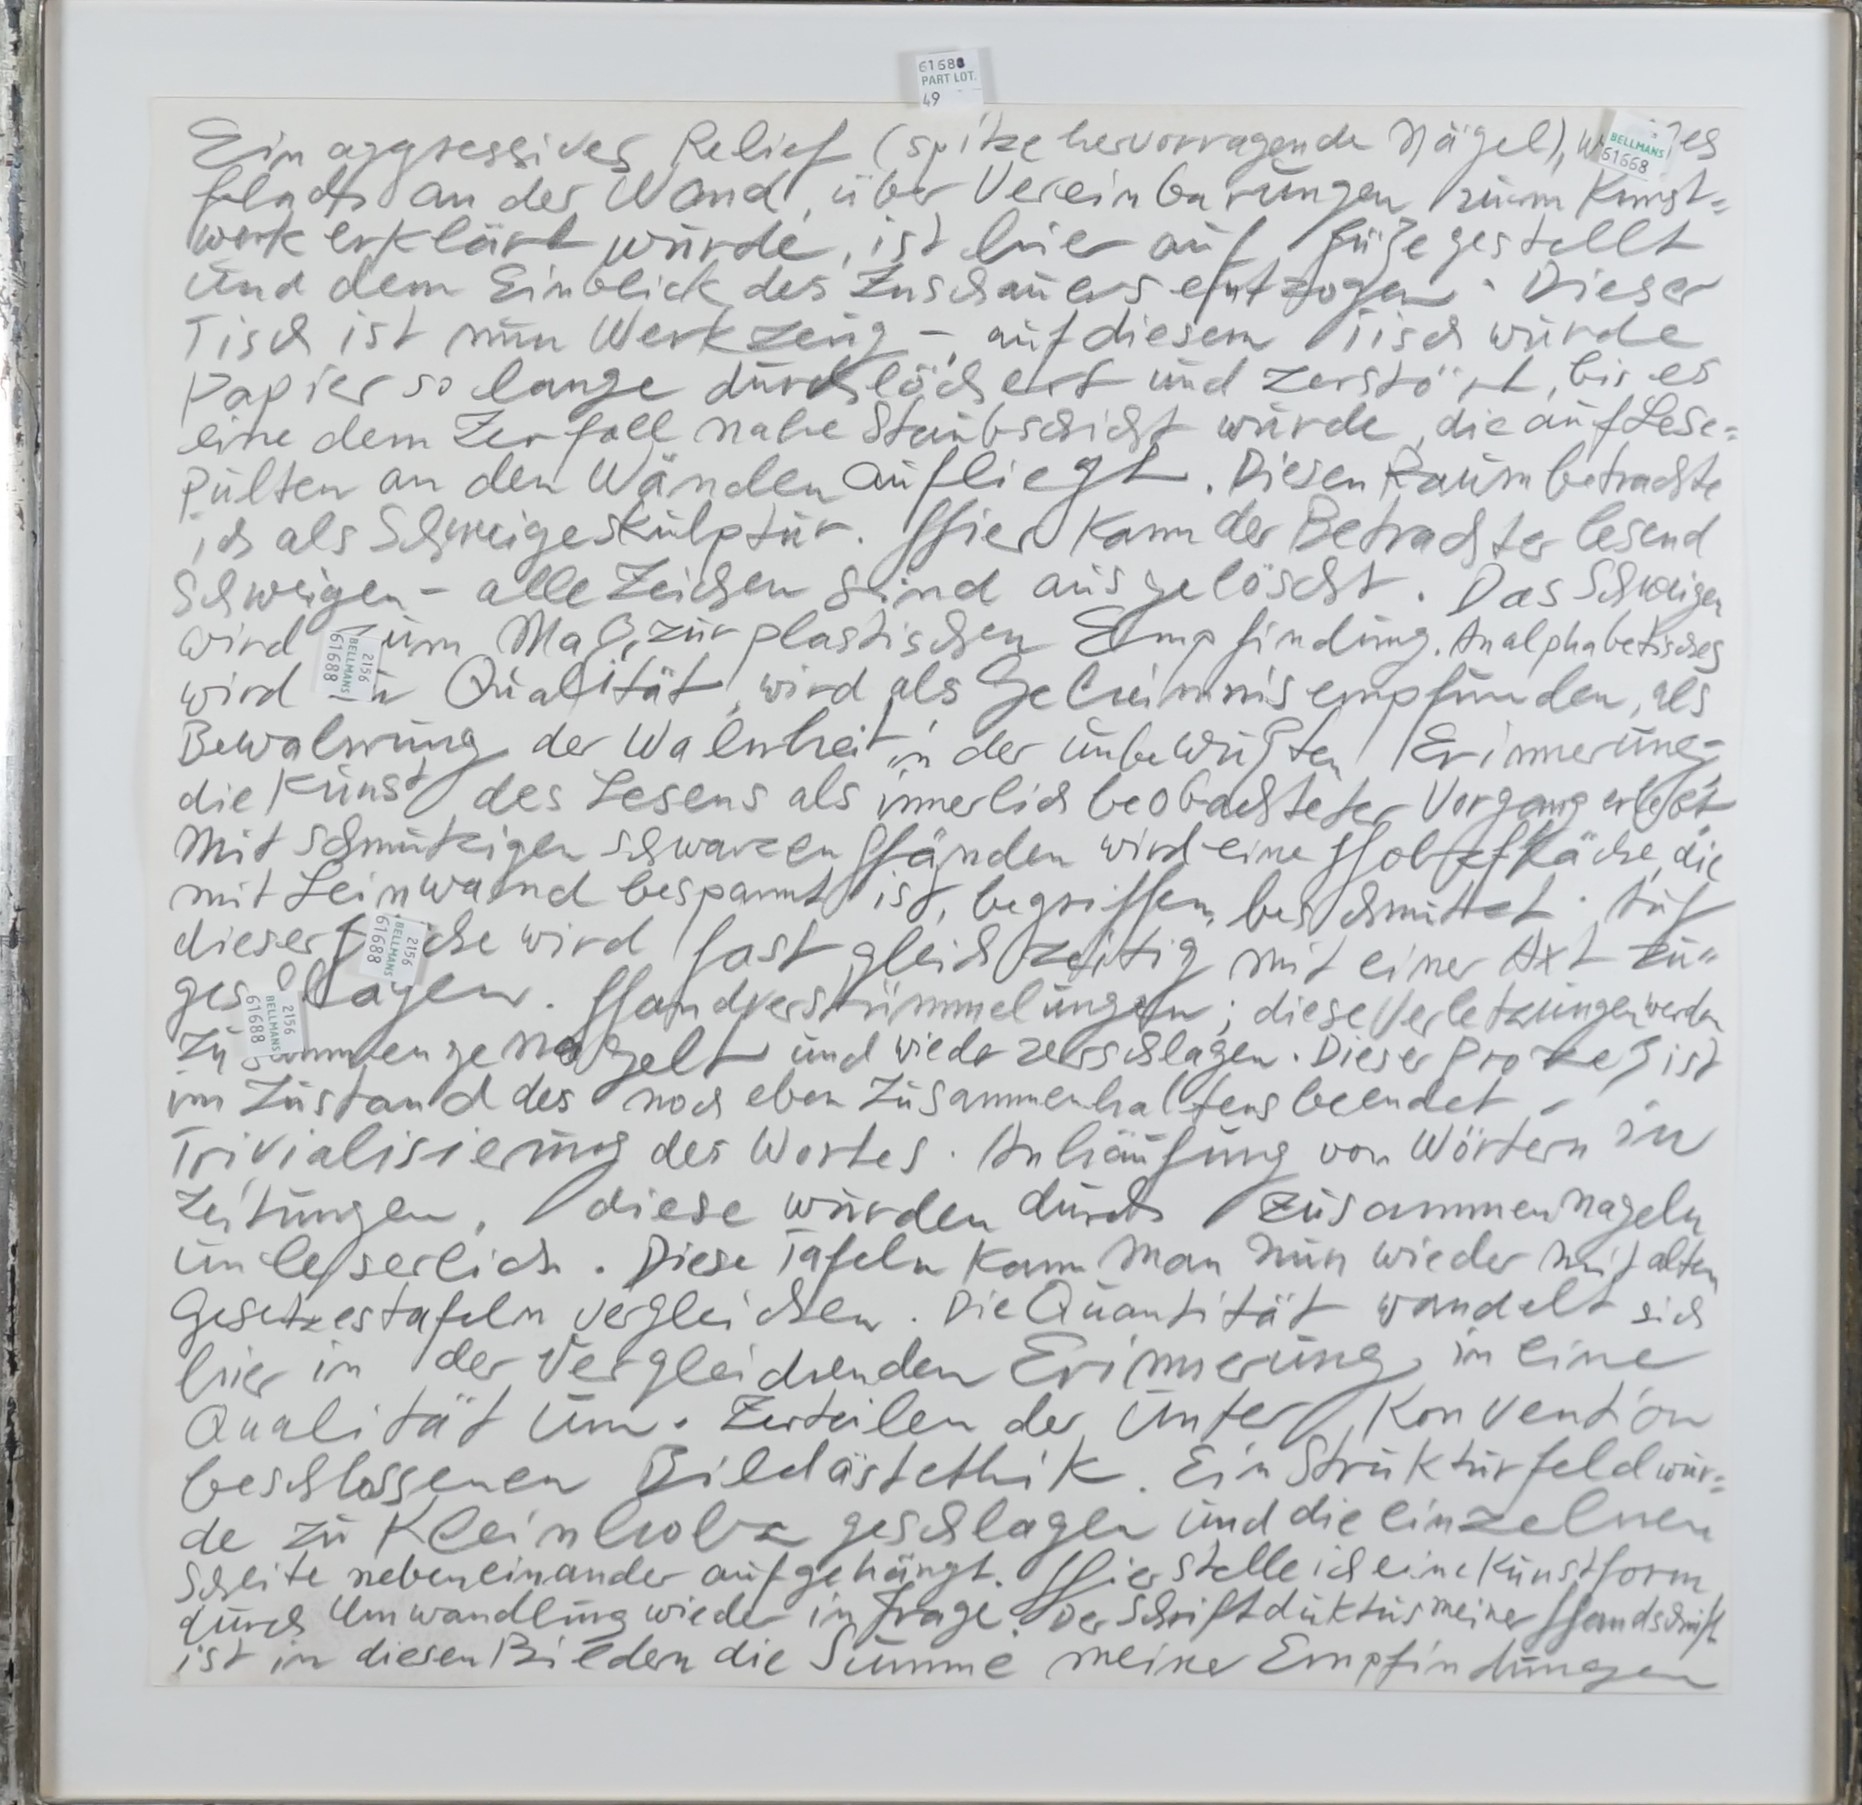 61688
PART LOT.
49
BELLMANS
61668
Ein aggressives Relief (spitze hervorragende Nägel), es
flach an der Wand, über Vereinbarungen zum Kunst=
werk erklärt wurde, ist hier auf Füße gestellt
und dem Einblick des Zuschauers entzogen. Dieser
Tisch ist nun Werkzeug –, auf diesem Tisch wurde
Papier so lange durchlöchert und zerstört, bis es
eine dem Zerfall nahe Staubschicht wurde, die auf Lese=
pulten an den Wänden aufliegt. Diesen Raum betrachte
ich als Schweigeskulptur. Hier kann der Betrachter lesend
Schweigen – alle Zeichen sind ausgelöscht. Das Schweigen
wird zum Maß, zur plastischen Empfindung. Analphabetisches
wird Qualität, wird als Geheimnis empfunden, als
Bewahrung der Wahrheit in der unbewußten Erinnerung –
die Kunst des Lesens als innerlich beobachteter Vorgang erlebt
Mit schmutzigen schwarzen Händen wird eine Holzfläche, die
mit Leinwand bespannt ist, begriffen, beschmutzt. Auf
dieser Fläche wird fast gleichzeitig mit einer Axt zu=
geschlagen. Handverstümmelungen; diese Verletzungen werden
zusammengenagelt und wieder zerschlagen. Dieser Prozeß ist
im Zustand des noch eben Zusammenhaltens beendet. –
Trivialisierung des Wortes. Anhäufung von Wörtern in
Zeitungen, diese wurden durch Zusammennageln
unleserlich. Diese Tafeln kann man nun wieder mit alten
Gesetzestafeln vergleichen. Die Quantität wandelt sich
hier in der vergleichenden Erinnerung in eine
Qualität um. Zerteilen der unter Konvention
beschlossenen Bildästethik. Ein Strukturfeld wur=
de zu Kleinholz geschlagen und die einzelnen
Scheite nebeneinander aufgehängt. Hier stelle ich eine Kunstform
durch Umwandlung wieder in Frage. Der Schriftduktus meiner Handschrift
ist in diesen Bildern die Summe meiner Empfindungen
2156
BELLMANS
61688
2156
BELLMANS
61688
2156
BELLMANS
61688